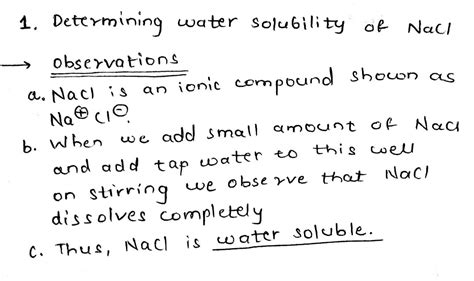 1. Determining water solubility of NaCl
→ observations
a. NaCl is an ionic compound shown as
Na⊕ Cl⊖.
b. When we add small amount of NaCl
and add tap water to this well
on stirring we observe that NaCl
dissolves completely
c. Thus, NaCl is water soluble.